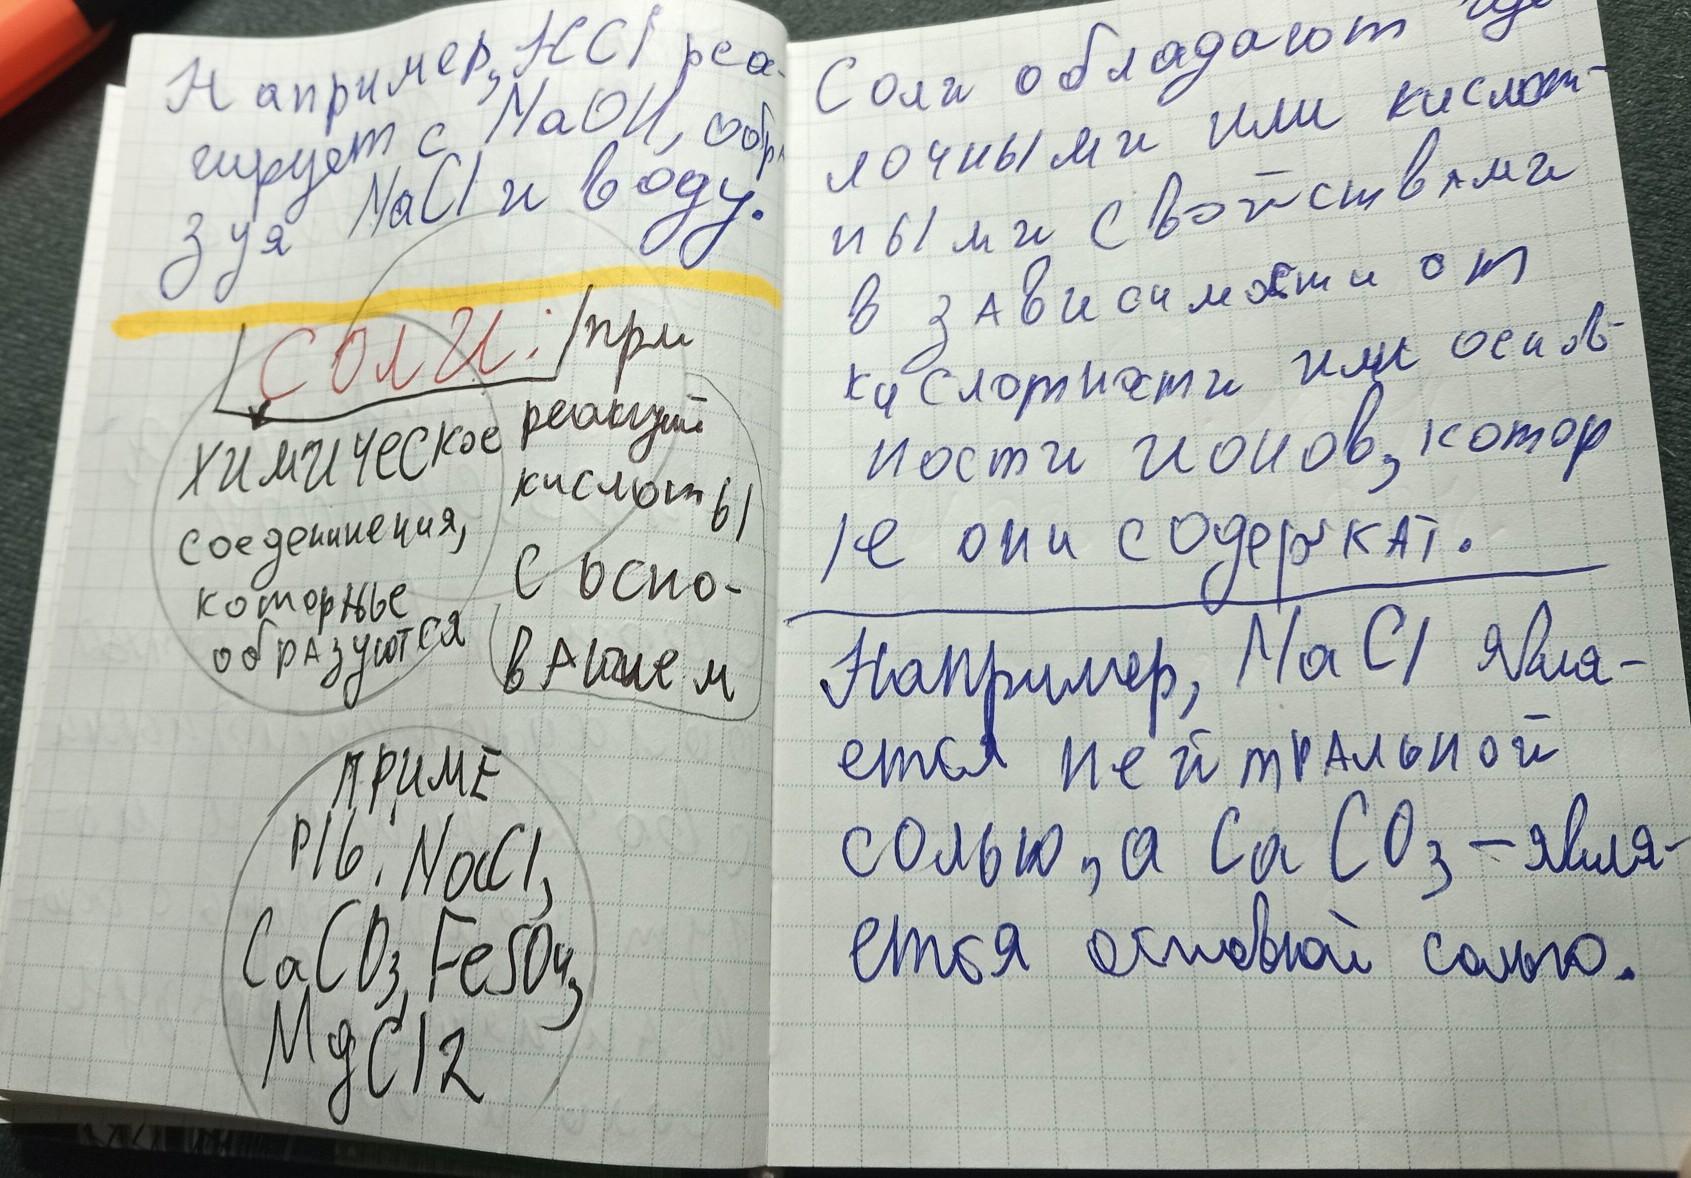 Например, HCl реа-
гирует с NaOH, обра
зуя NaCl и воду.
СОЛИ:
химическое
соеденинения,
которые
образуются
при
реакций
кислоты
с осно-
ванием
ПРИМЕ
РЫ: NaCl,
CaCO3, FeSO4,
MgCl2
Соли обладают ще
лочными или кислот-
ными свойствами
в зависимости от
кислотности или основ-
ности ионов, котор
ые они содержат.
Например, NaCl явля-
ется нейтральной
солью, а CaCO3 - явля-
ется основной солью.